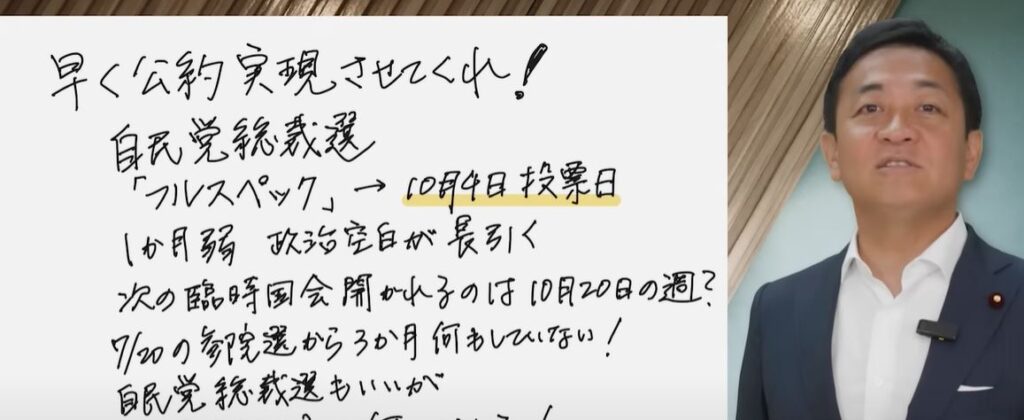 早く公約実現させてくれ!
自民党総裁選
「フルスペック」→ 10月4日投票日
1か月弱 政治空白が長引く
次の臨時国会開かれるのは10月20日の週?
7/20の参院選から3か月何もしていない!
自民党総裁選もいいが